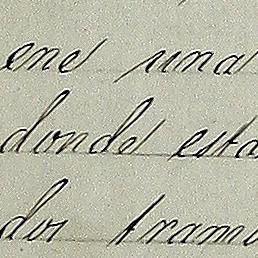 ene una
donde esta
dos tram